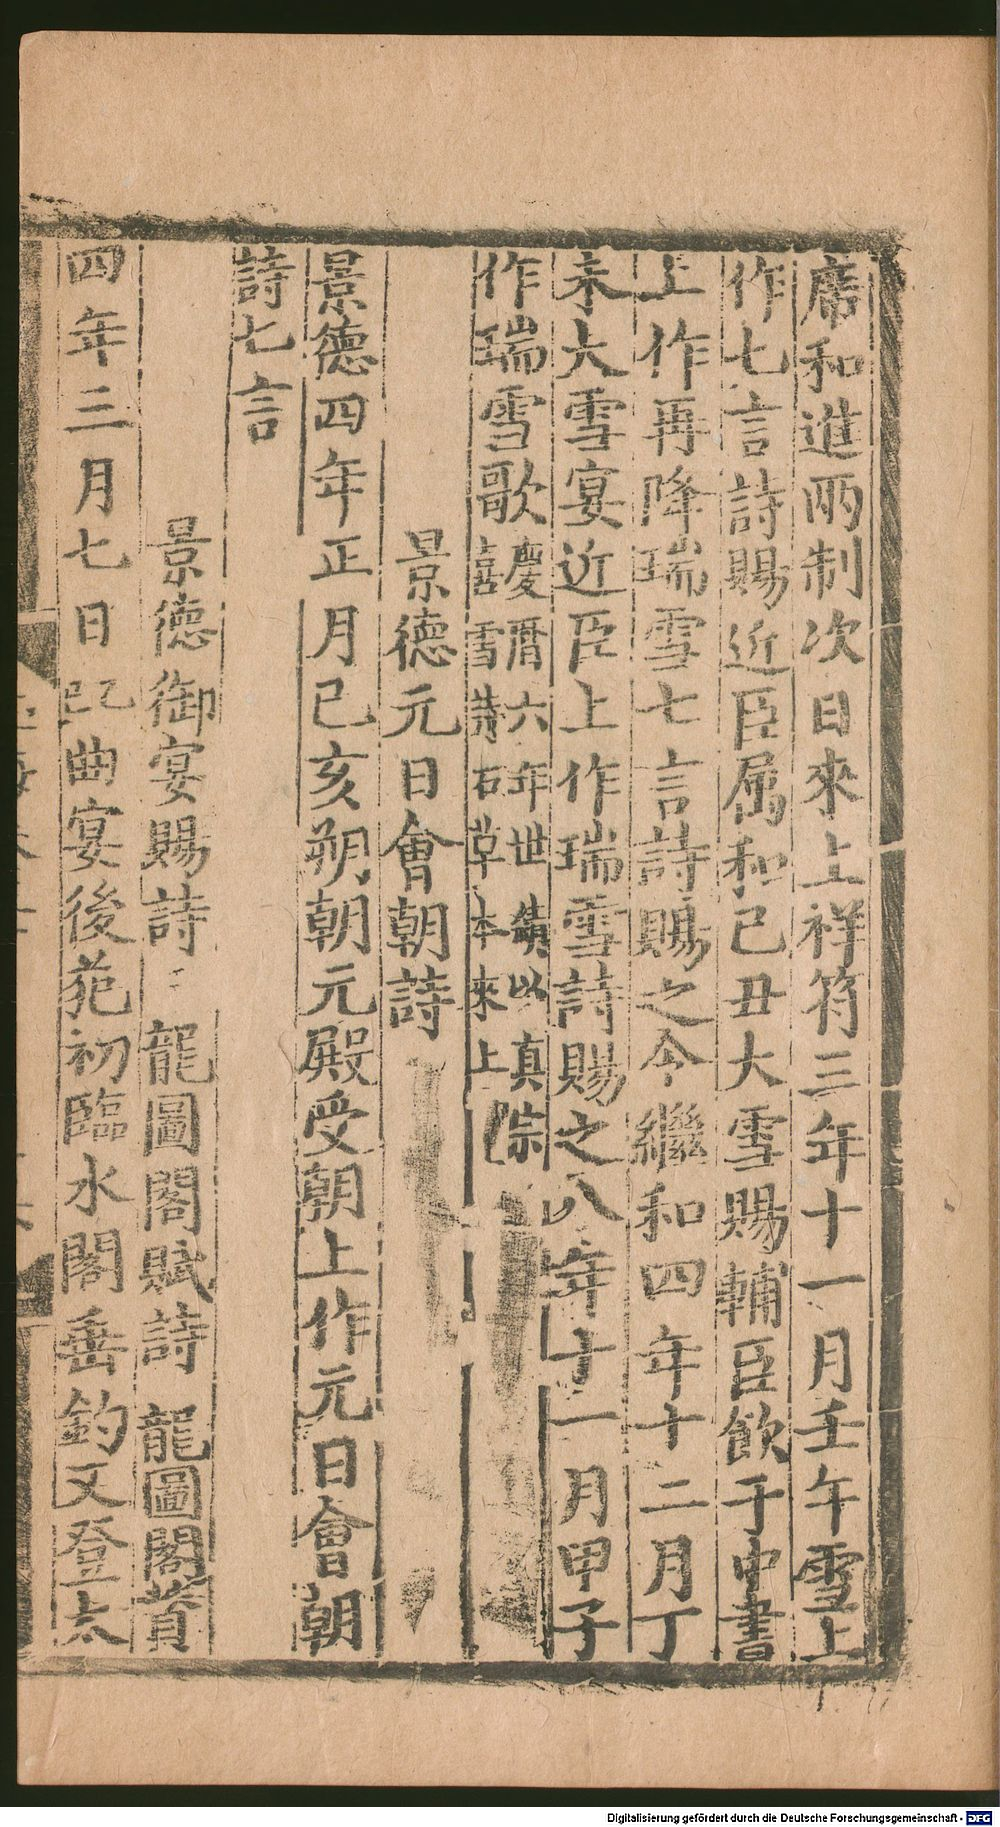 席和進兩制次日來上祥符三年十一月壬午雪上
作七言詩賜近臣属和己丑大雪賜輔臣飲于中書
上作再降瑞雪七言詩賜之令繼和四年十二月丁
未大雪宴近臣上作瑞雪詩賜之八年十一月甲子
作瑞雪歌
慶曆六年世績以真宗
喜雪詩石草本來上
景德元日會朝詩
景德四年正月己亥朔朝元殿受朝上作元日會朝
詩七言
景德御宴賜詩 龍圖閣賦詩 龍圖閣賞
四年三月七日己巳曲宴後苑初臨水閣垂釣又登太
Digitalisierung gefördert durch die Deutsche Forschungsgemeinschaft - DFG